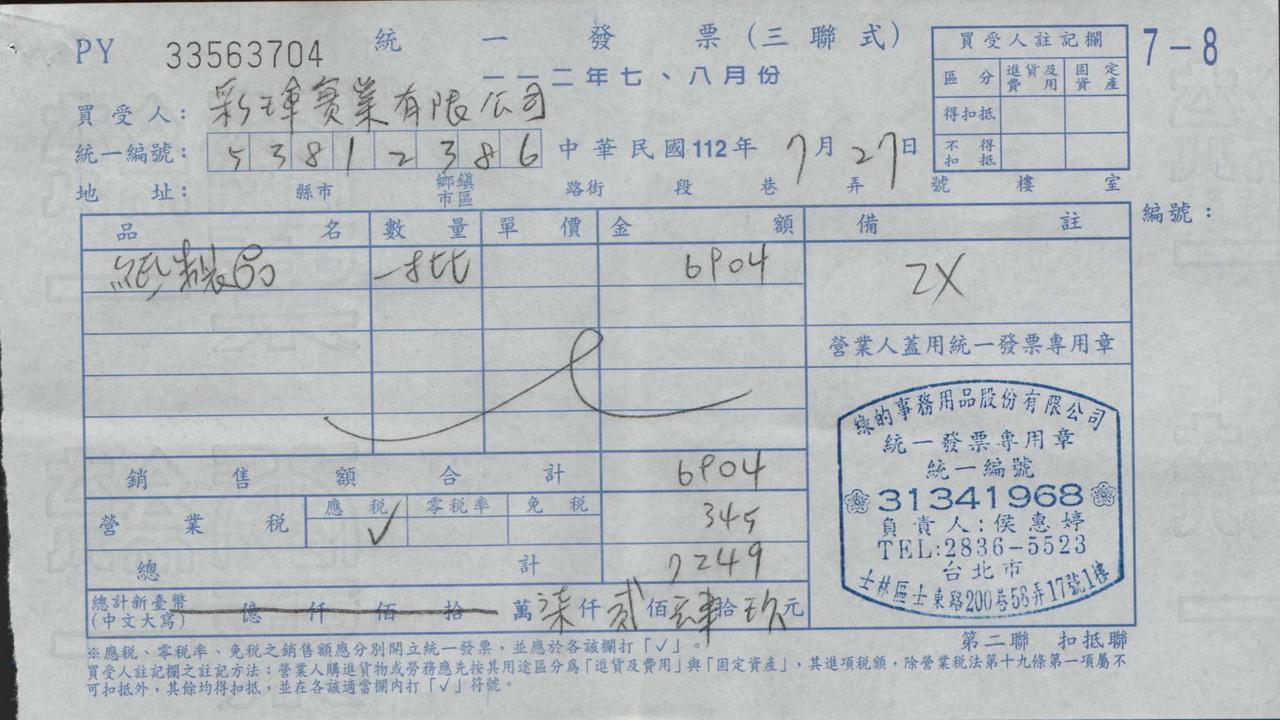 PY 33563704 統一發票(三聯式)
一一二年七、八月份
7-8
買受人註記欄
區分 進貨及費用 固定資產
得扣抵
不得扣抵
買受人: 彩琿實業有限公司
統一編號: 53812386 中華民國112年7月27日
地址: 縣市 鄉鎮市區 路街 段 巷 弄 號 樓 室
編號:
品名 數量 單價 金額 備註
紙製品 一批 6904 2X
營業人蓋用統一發票專用章
銷售額合計 6904
營業稅 應稅 ✓ 零稅率 免稅 345
總計 7249
總計新臺幣(中文大寫) 億仟佰拾萬柒仟貳佰肆拾玖元
綠的事務用品股份有限公司
統一發票專用章
統一編號
31341968
負責人:侯惠婷
TEL:2836-5523
台北市
士林區士東路200巷56弄17號1樓
第二聯 扣抵聯
※應稅、零稅率、免稅之銷售額應分別開立統一發票,並應於各該欄打「✓」。
買受人註記欄之註記方法:營業人購進貨物或勞務應先按其用途區分為「進貨及費用」與「固定資產」,其進項稅額,除營業稅法第十九條第一項屬不
可扣抵外,其餘均得扣抵,並在各該適當欄內打「✓」符號。